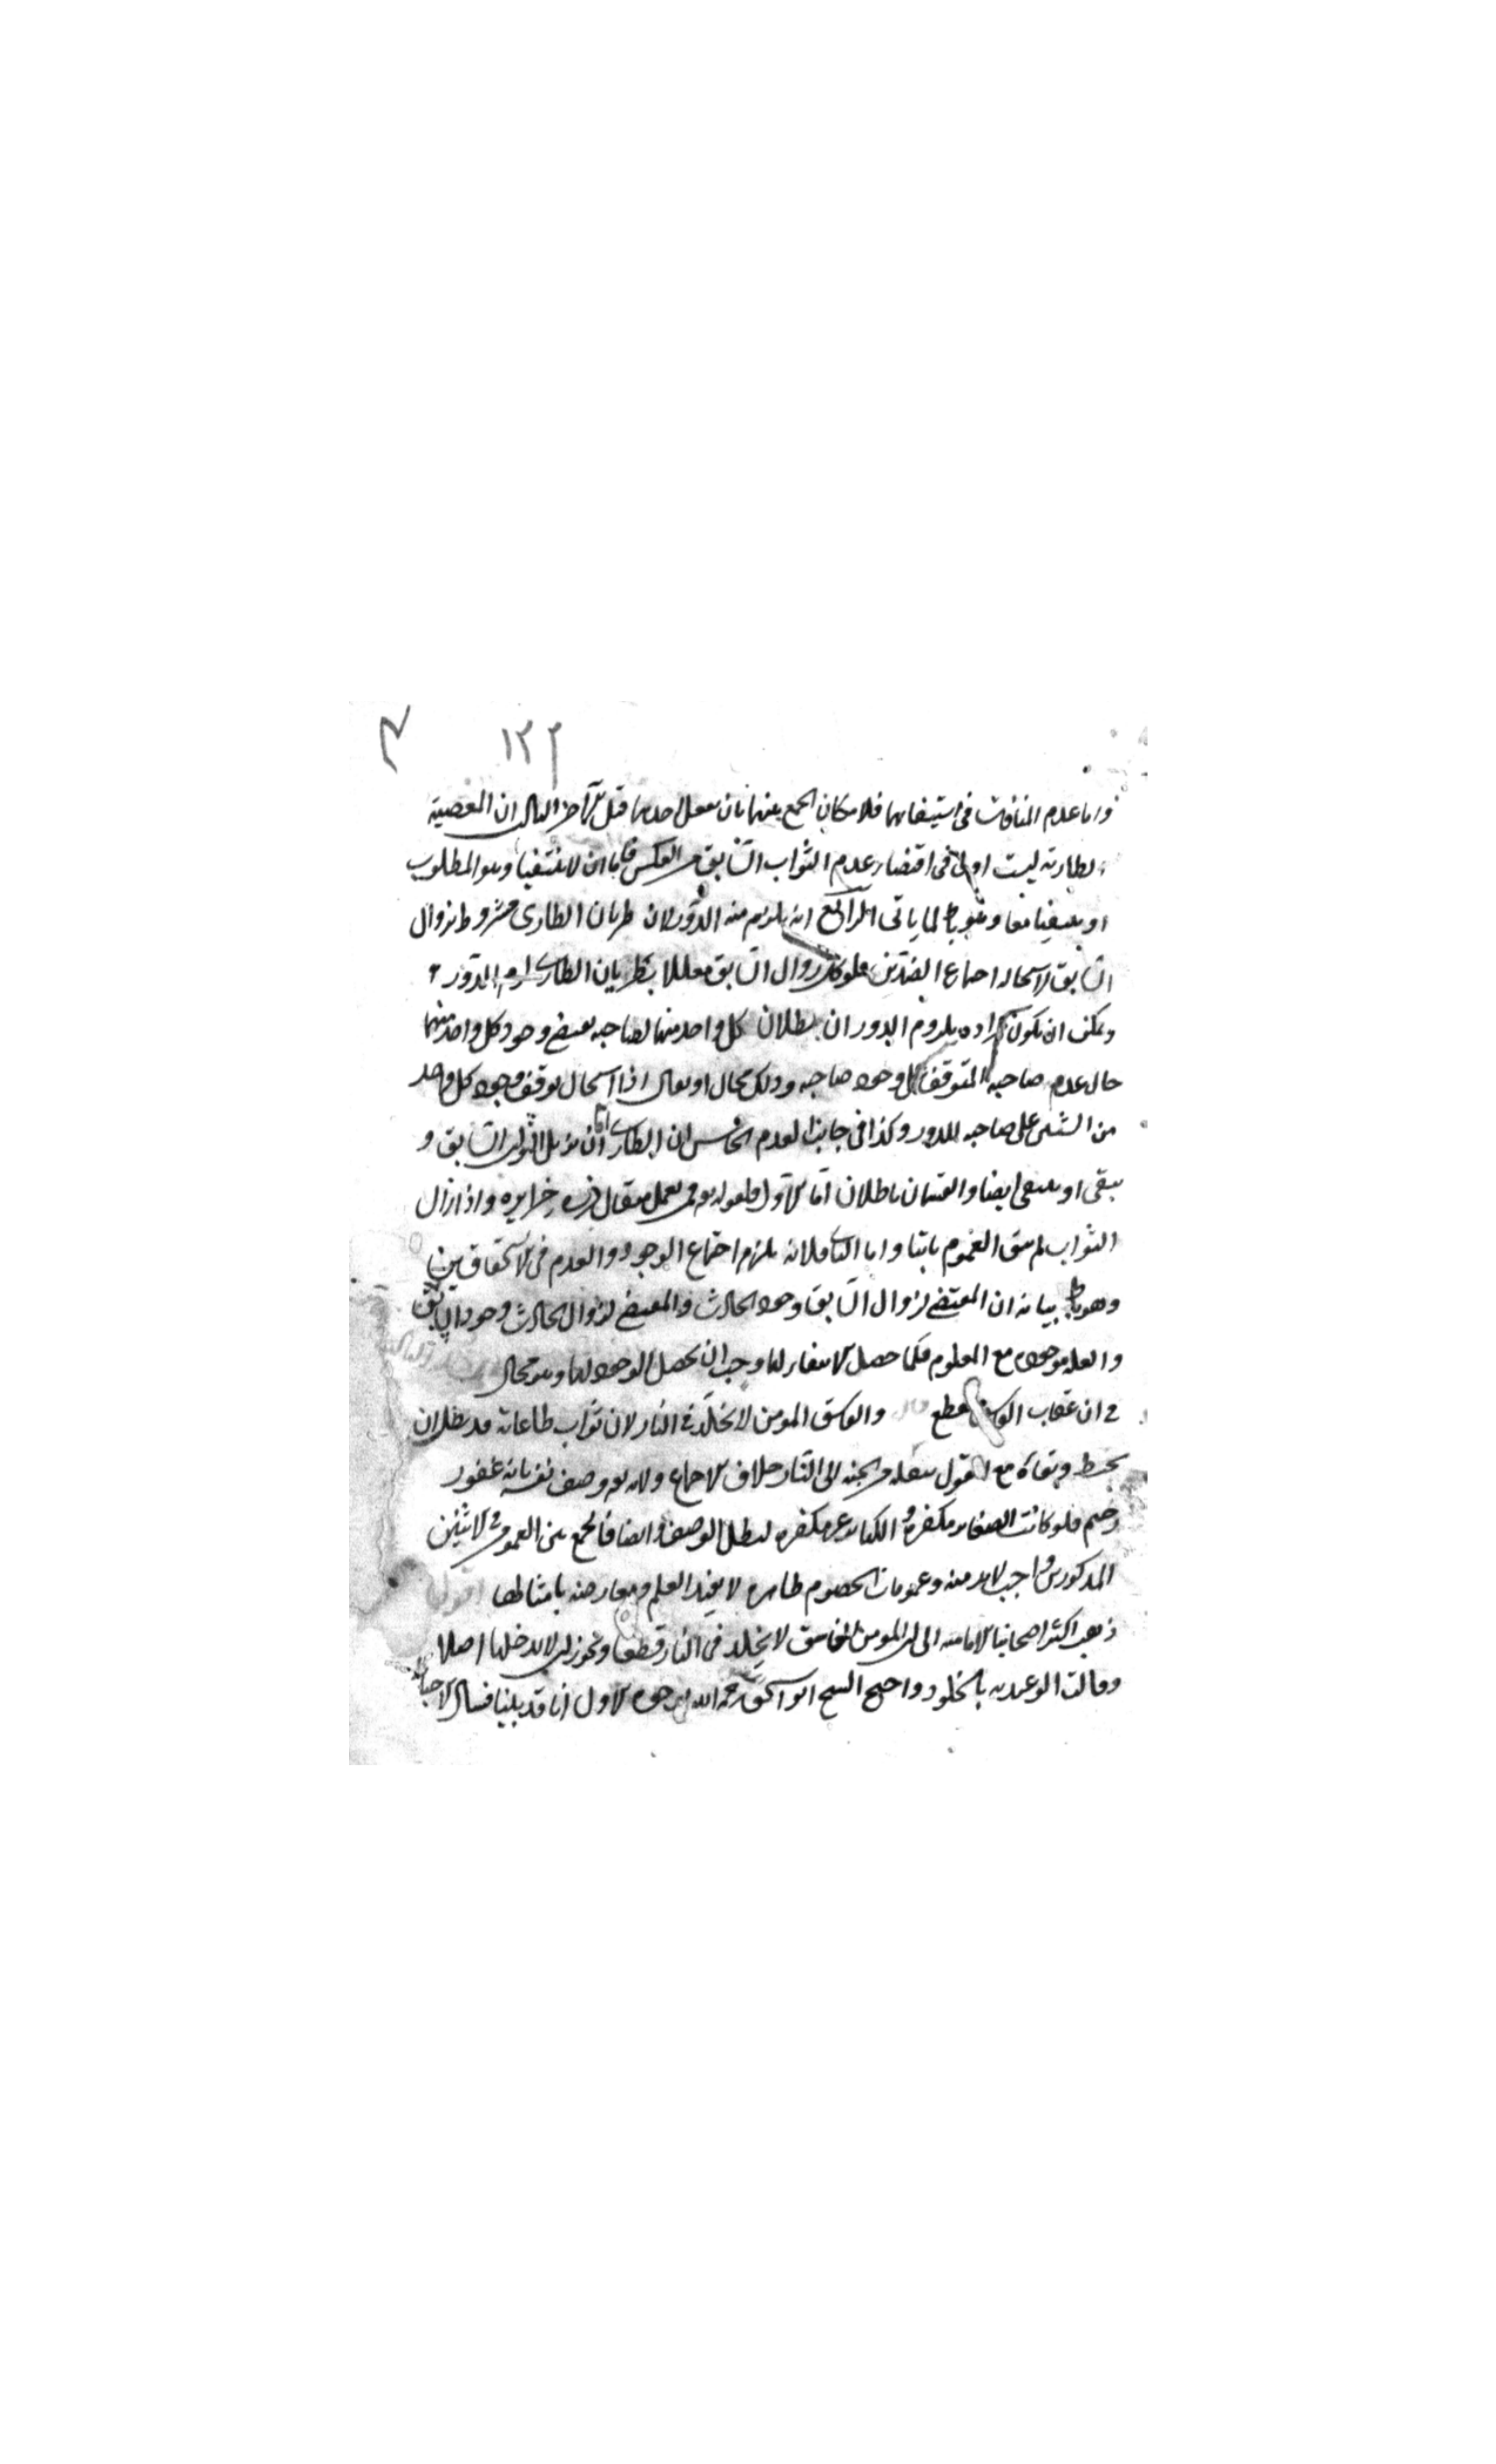 ١٢٢
واما عدم المنافات في استيفائهما فلامكان الجمع بينهما بان يفعل احدهما قبل الآخر الثالث ان المعصية
الطارية ليست اولى في اقتضاء عدم الثواب السابق من العكس فاما ان لا ينتفيا وهو المطلوب
او ينتفيا معا وهو باطل لما ياتي الرابع انه يلزم منه الدور لان طريان الطارى مشروط بزوال
السابق لاستحالة اجتماع الضدين فلو كان زوال السابق معللا بطريان الطارى لزم الدور
ويمكن ان يكون مراده بلزوم الدور ان بطلان كل واحد منهما لصاحبه يقتضي وجود كل واحد منهما
حال عدم صاحبه المتوقف على وجود صاحبه وذلك محال او يقال اذا استحال توقف وجود كل واحد
من الشيئين على صاحبه للدور وكذا في جانب العدم الخامس ان الطارى اما ان يزيل الثواب السابق و
يبقى او ينتفي ايضا والقسمان باطلان اما الاول فلقوله تعالى فمن يعمل مثقال ذرة خيرا يره واذا زال
الثواب لم يبق العموم ثابتا واما الثاني فلانه يلزم اجتماع الوجود والعدم في الاستحقاقين
وهو باطل بيانه ان المقتضي لزوال السابق وجود الحادث والمقتضي لزوال الحادث وجود السابق
والعلة موجودة مع المعلوم فكلما حصل الانتفاء لهما وجب ان يحصل الوجود لهما وهو محال
في ان عقاب الفاسق منقطع قال والفاسق المومن لا يخلد في النار لان ثواب طاعاته قد بطلان
يحبط وبقاؤه مع القول بنقله من الجنة الى النار خلاف الاجماع ولانه تعالى وصف نفسه بانه غفور
رحيم فلو كانت الصغاير مكفرة و الكباير غير مكفرة لبطل الوصف وايضا فالجمع بين العموم في الاثنين
المذكورين واجب لا بد منه وعمومات الخصوم ظاهرة لا يفيد العلم ومعارضة بامثالها اقول
ذهب اكثر اصحابنا الامامية الى ان المومن الفاسق لا يخلد في النار قطعا ويجوز ان لا يدخلها اصلا
وقالت الوعيدية بالخلود واحتج الشيخ ابو اسحق رحمه الله بوجوه الاول انا قد بينا فساد الاحباط